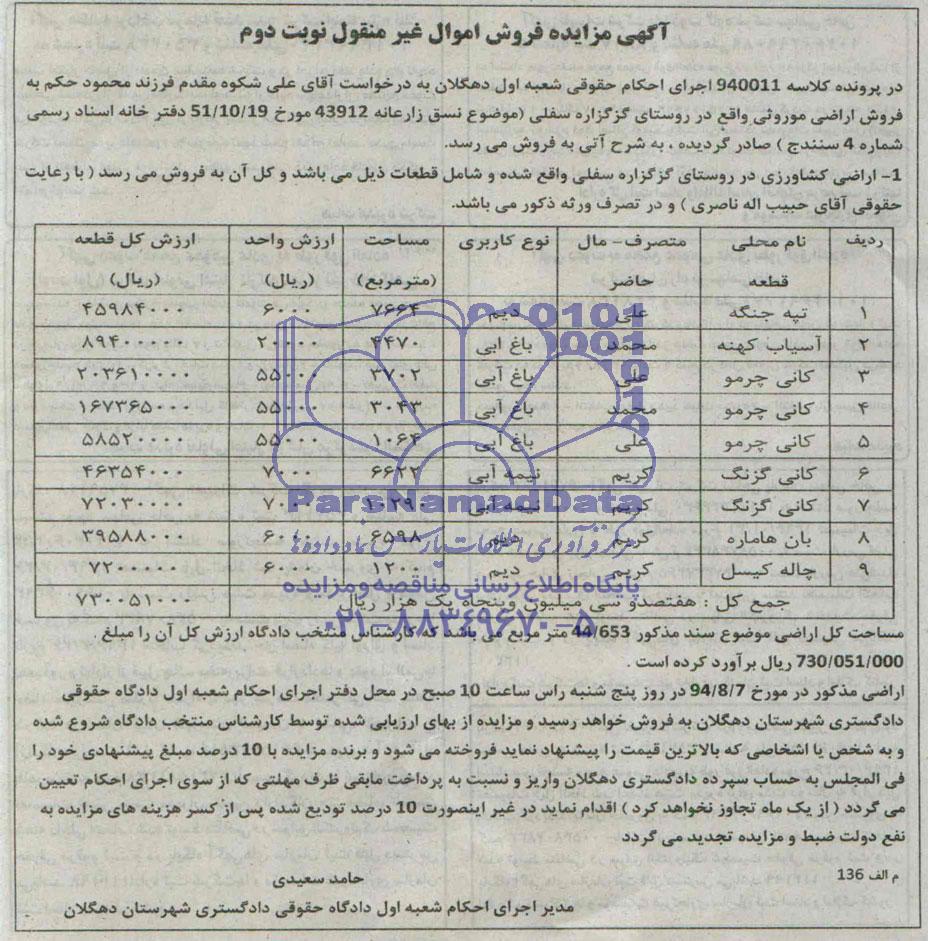 آگهی مزایده فروش اموال غیر منقول نوبت دوم
در پرونده کلاسه 940011 اجرای احکام حقوقی شعبه اول دهگلان به درخواست آقای علی شکوه مقدم فرزند محمود حکم به
فروش اراضی موروثی واقع در روستای گزگزاره سفلی (موضوع نسق زارعانه 43912 مورخ 51/10/19 دفتر خانه اسناد رسمی
شماره 4 سنندج ) صادر گردیده ، به شرح آتی به فروش می رسد.
1- اراضی کشاورزی در روستای گزگزاره سفلی واقع شده و شامل قطعات ذیل می باشد و کل آن به فروش می رسد ( با رعایت
حقوقی آقای حبیب اله ناصری ) و در تصرف ورثه ذکور می باشد.
ردیف نام محلی قطعه متصرف- مال حاضر نوع کاربری مساحت (مترمربع) ارزش واحد (ریال) ارزش کل قطعه (ریال)
۱ تپه جنگه علی دیم ۷۶۶۴ ۶۰۰۰ ۴۵۹۸۴۰۰۰
۲ آسیاب کهنه محمد باغ ابی ۴۴۷۰ ۲۰۰۰۰ ۸۹۴۰۰۰۰۰
۳ کانی چرمو علی باغ آبی ۳۷۰۲ ۵۵۰۰۰ ۲۰۳۶۱۰۰۰۰
۴ کانی چرمو محمد باغ آبی ۳۰۴۳ ۵۵۰۰۰ ۱۶۷۳۶۵۰۰۰
۵ کانی چرمو علی باغ آبی ۱۰۶۴ ۵۵۰۰۰ ۵۸۵۲۰۰۰۰
۶ کانی گزنگ کریم نیمه آبی ۶۶۲۲ ۷۰۰۰ ۴۶۳۵۴۰۰۰
۷ کانی گزنگ کریم نیمه آبی ۱۰۲۹۰ ۷۰۰۰ ۷۲۰۳۰۰۰۰
۸ بان هاماره کریم دیم ۶۵۹۸ ۶۰۰۰ ۳۹۵۸۸۰۰۰
۹ چاله کیسل کریم دیم ۱۲۰۰ ۶۰۰۰ ۷۲۰۰۰۰۰
جمع کل : هفتصدو سی میلیون وپنجاه یک هزار ریال ۷۳۰۰۵۱۰۰۰
مساحت کل اراضی موضوع سند مذکور 44/653 متر مربع می باشد که کارشناس منتخب دادگاه ارزش کل آن را مبلغ
730/051/000 ریال برآورد کرده است .
اراضی مذکور در مورخ 94/8/7 در روز پنج شنبه راس ساعت 10 صبح در محل دفتر اجرای احکام شعبه اول دادگاه حقوقی
دادگستری شهرستان دهگلان به فروش خواهد رسید و مزایده از بهای ارزیابی شده توسط کارشناس منتخب دادگاه شروع شده
و به شخص یا اشخاصی که بالاترین قیمت را پیشنهاد نماید فروخته می شود و برنده مزایده با 10 درصد مبلغ پیشنهادی خود را
فی المجلس به حساب سپرده دادگستری دهگلان واریز و نسبت به پرداخت مابقی ظرف مهلتی که از سوی اجرای احکام تعیین
می گردد ( از یک ماه تجاوز نخواهد کرد ) اقدام نماید در غیر اینصورت 10 درصد تودیع شده پس از کسر هزینه های مزایده به
نفع دولت ضبط و مزایده تجدید می گردد
م الف 136
حامد سعیدی
مدیر اجرای احکام شعبه اول دادگاه حقوقی دادگستری شهرستان دهگلان
ParsNamadData
مرکز فرآوری اطلاعات پارس نماد داده ها
پایگاه اطلاع رسانی مناقصه و مزایده
۰۲۱-۸۸۳۴۹۶۷۰-۵